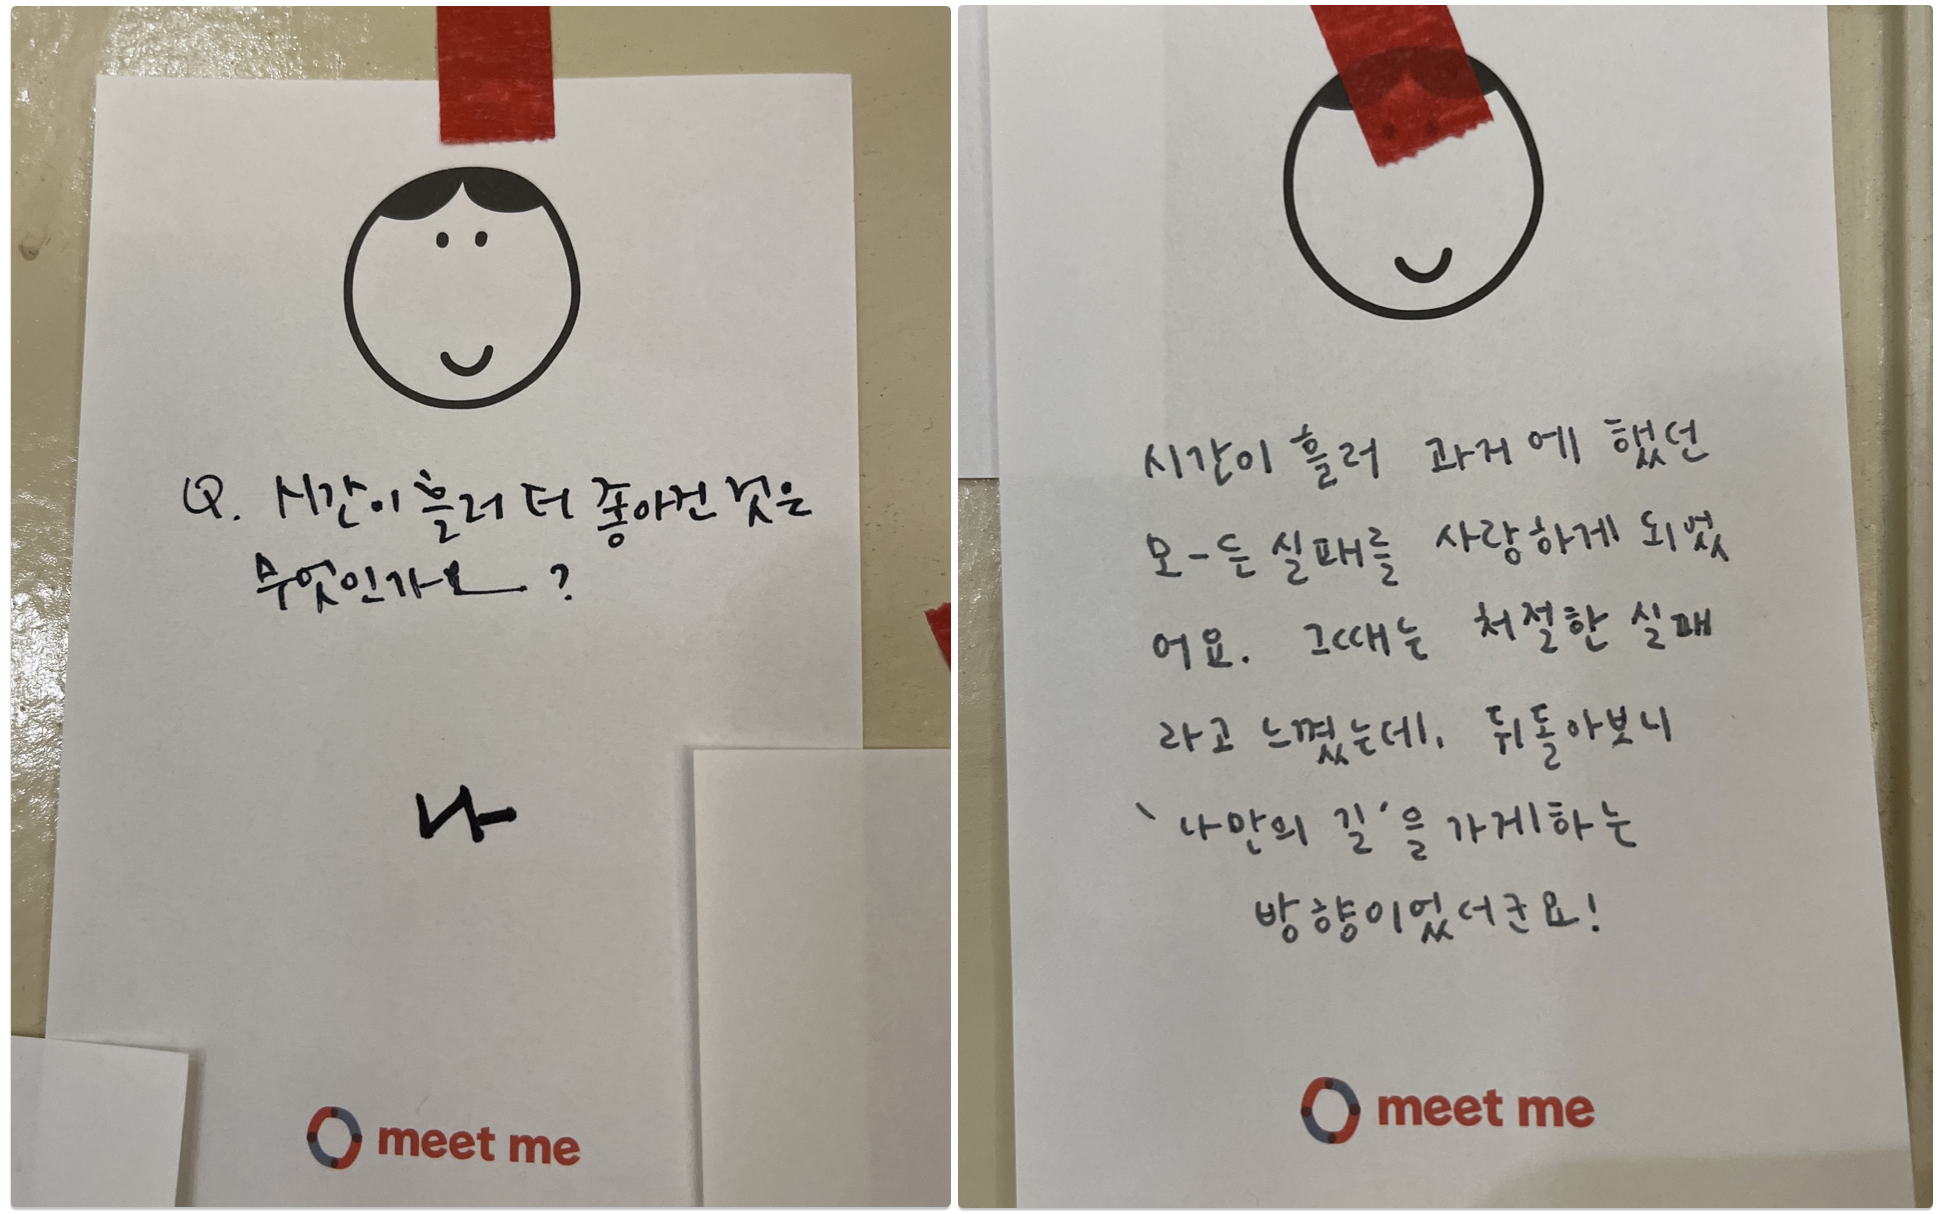 Q. 시간이 흘러 더 좋아진 것은
무엇인가요?
나
meet me
시간이 흘러 과거에 했던
모-든 실패를 사랑하게 되었
어요. 그때는 처절한 실패
라고 느꼈는데, 뒤돌아보니
'나만의 길'을 가게하는
방향이었더군요!
meet me